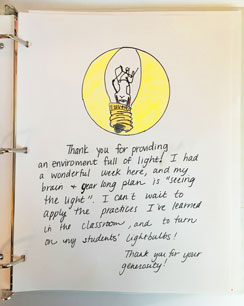 Thank you for providing
an enviroment full of light! I had
a wonderful week here, and my
brain & year long plan is "seeing
the light". I can't wait to
apply the practices I've learned
in the classroom, and to turn
on my students' lightbulbs!
Thank you for your
generosity!